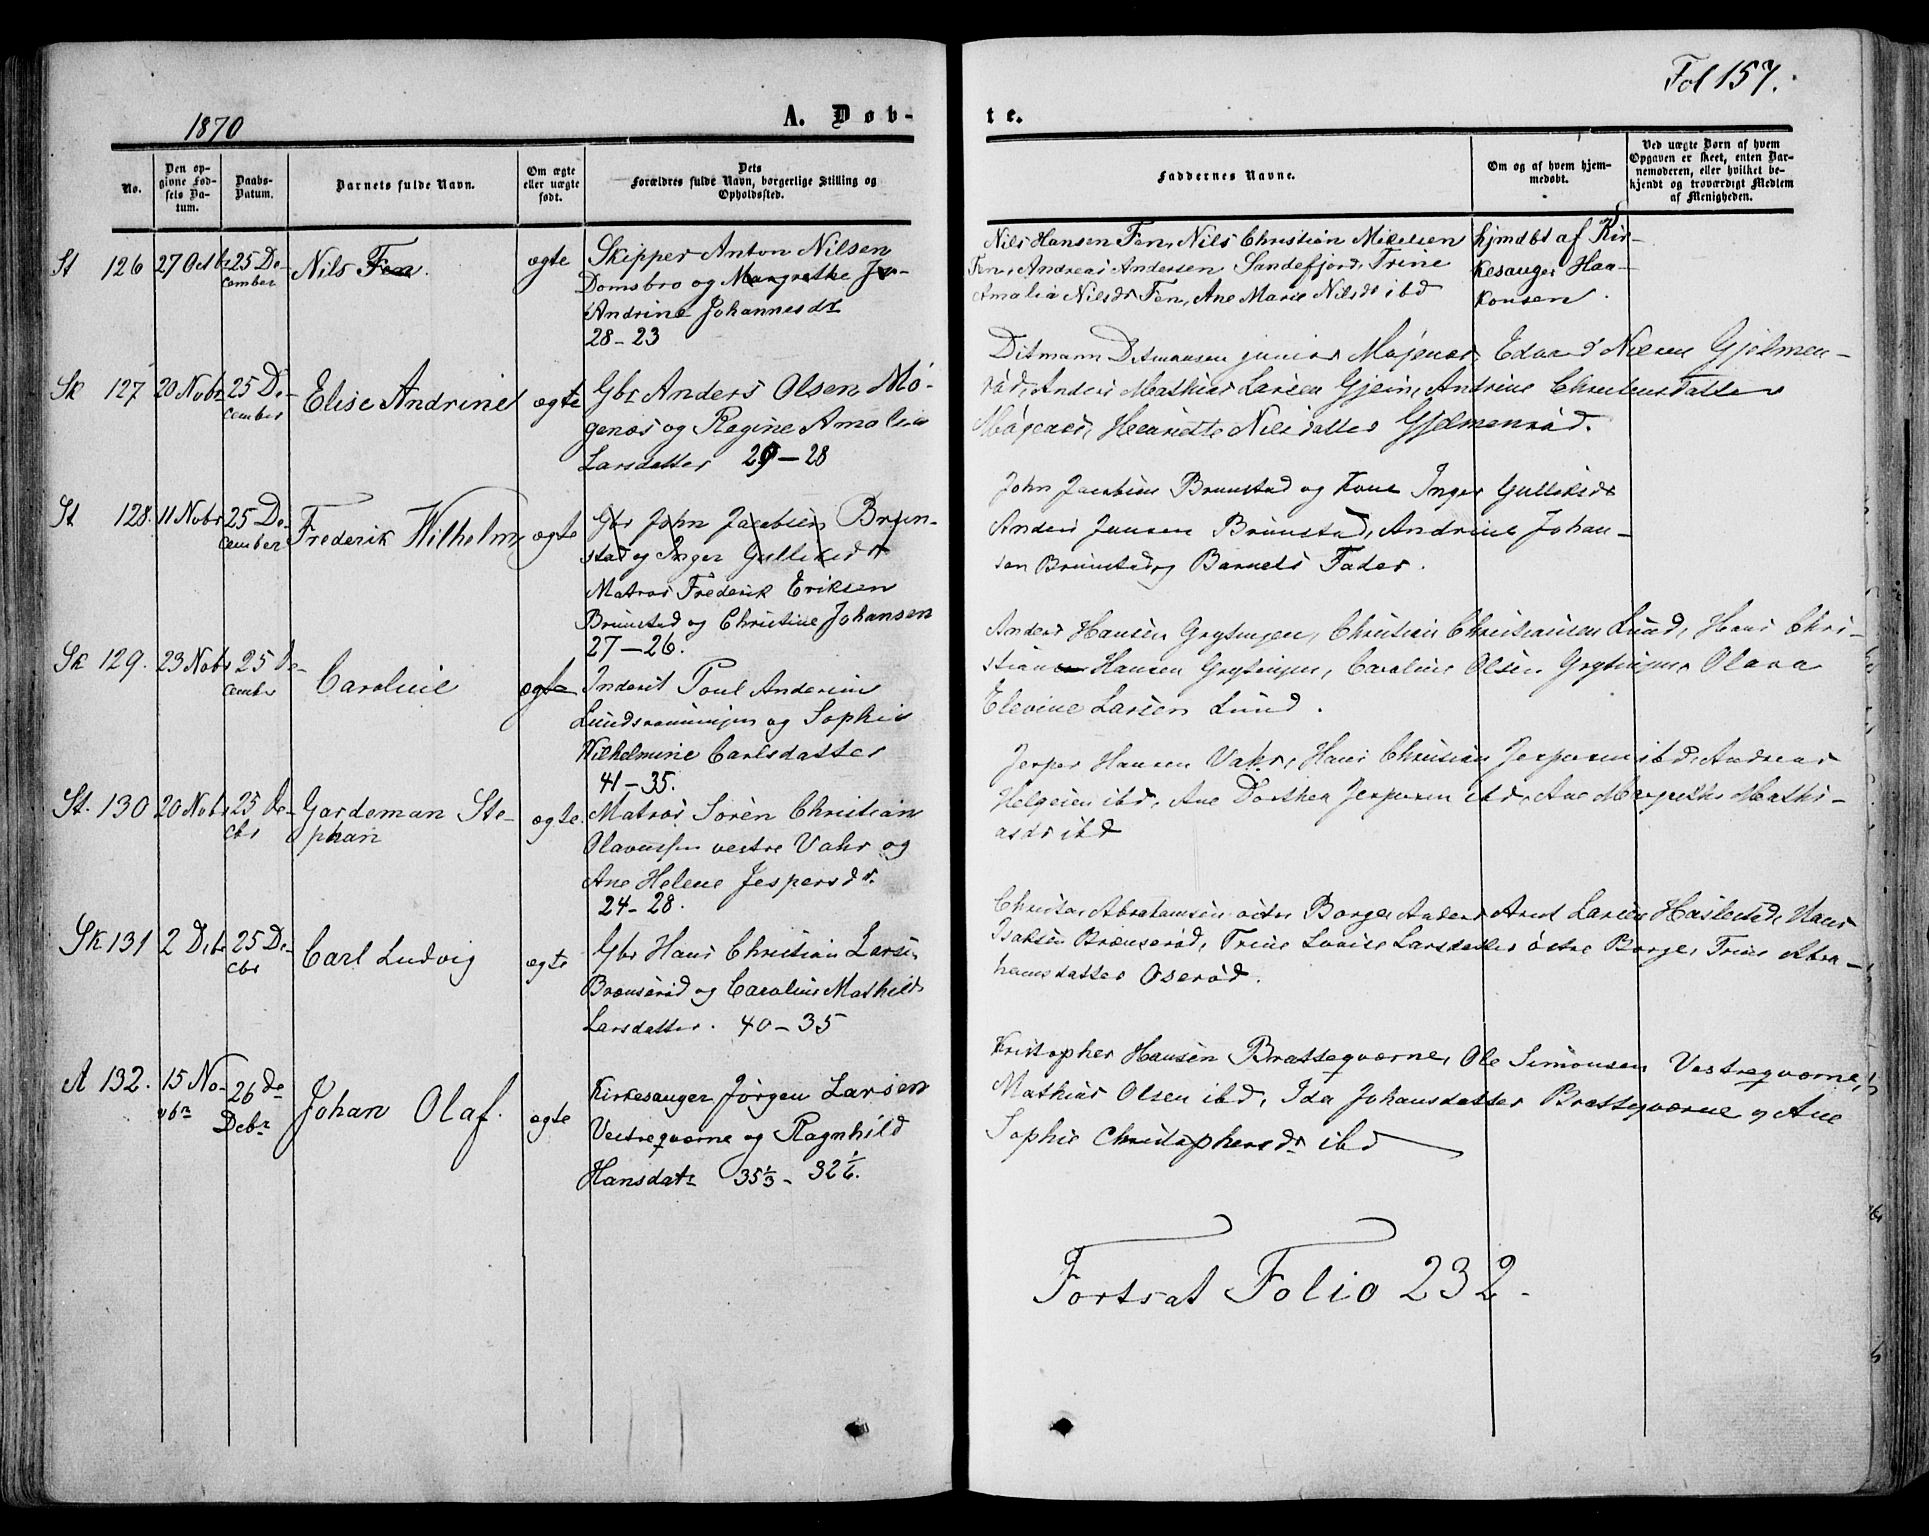 Fol 157.
1870
A. Døb-
te.
No.
Den op-
givne Fød-
sels Da-
tum.
Daabs-
Datum.
Barnets fulde Navn.
Om ægte
eller uægte
født.
Dets
Forældres fulde Navn, borgerlige Stilling og
Opholdssted.
Faddernes Navne.
Om og af hvem hjem-
medøbt.
Ved uægte Børn af hvem
Opgaven er skeet, enten Bar-
nemoderen, eller hvilket be-
kjendt og troværdigt Medlem
af Menigheden.
St 126 27 Octbr 25 De-
cember
Nils Fen.
ægte
Skipper Anton Nilsen
Domsbro og Margrethe
Andrine Johannesdr
28-23
Nils Hansen Fen, Nils Christian Mikelsen
Fen, Andreas Andersen Sandefjord, Trine
Amalia Nilsdr Fen, Ane Marie Nilsdr ibd
hjmdbt af Kir-
kesanger Haa-
konsen.
Sk 127 20 Nobr 25 De-
cember
Elise Andrine
ægte
Gbr Anders Olsen Mø-
genæs og Ragine Amalia
Larsdatter 29-28
Ditmann Ditmansen junior Møgenæs, Edvard Nilsen Gjelmen-
rød, Anders Mathias Larsen Gjein, Andrine Christensdatter
Møgenæs, Henriette Nilsdatter Gjelmenrød.
St 128. 11 Nobr 25 De-
cember
Frederik Wilhelm
ægte
Gbr John Jacobsen Brun-
stad og Inger Gulliksdr
Matros Frederik Eriksen
Brunstad og Christine Johansen
27-26.
John Jacobsen Brunstad og Kone Inger Gulliksdr
Anders Jansen Brunstad, Andrine Johan-
sen Brunstad og Barnets Fader.
Sk 129. 23 Nobr 25 De-
cembr
Caroline
ægte
Inderst Poul Andersen
Lundsrønningen og Sophie
Wilhelmine Carlsdatter
41-35.
Anders Hansen Grytingen, Christian Christiansen Lund, Hans Chri-
stian Hansen Grytingen, Caroline Olsen Grytingen, Olava
Elevine Larsen Lund.
St. 130 20 Nobr 25 De-
cbr
Gardeman Ste-
phan
ægte.
Matros Søren Christian
Olavessen vestre Vahr og
Ane Helene Jespersdr.
24-28.
Jesper Hansen Vahr, Hans Christian Jespersen ibd, Andreas
Helgesen ibd, Ane Dorthea Jespersen ibd, Ane Margrethe Mathi-
asdr ibd
Sk 131 2 Debr 25 De-
cbr
Carl Ludvig
ægte
Gbr Hans Christian Larsen
Brænserød og Caroline Mathilde
Larsdatter. 40-35
Christen Abrahamsen østre Borge, Anders Arnt Larsen Haslestad, Hans
Isaksen Brænserød, Trine Lovise Larsdatter østre Borge, Trine Abra-
hamsdatter Oserød.
A 132. 15 No-
vbr
26 de
Debr
Johan Olaf.
ægte
Kirkesanger Jørgen Larsen
Vestreqværne og Ragnhild
Hansdatr 35 1/3 - 32 1/6.
Kristopher Hansen Bratteqværne, Ole Simonsen Vestreqværne,
Mathias Olsen ibd, Ida Johansdatter Bratteqværne og Ane
Sophie Christophersdr ibd
Fortsat Folio 232.